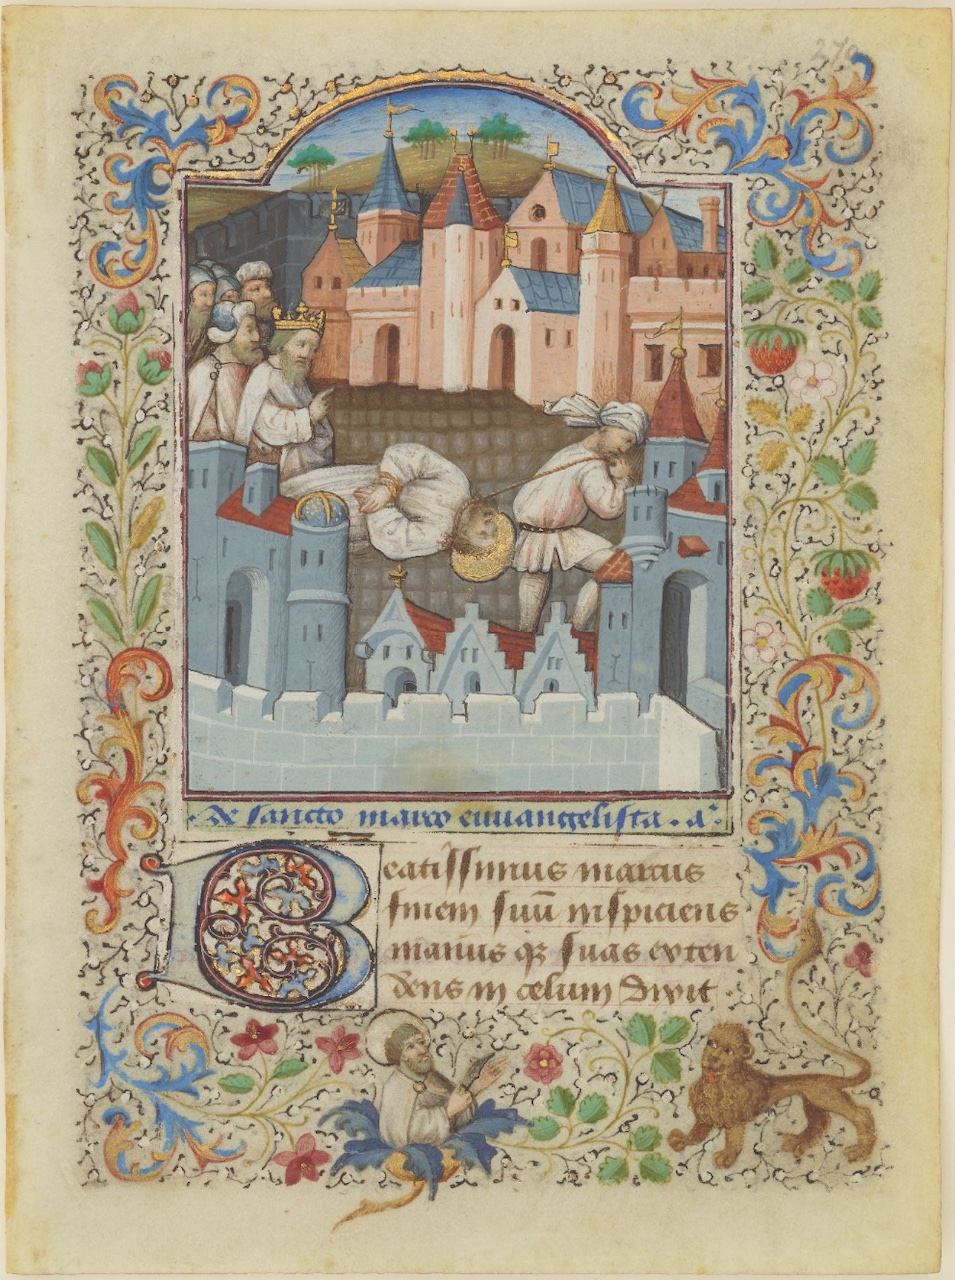 De sancto marco euuangelista . aª.
Beatissimus marcus
finem suū inspiciens
manus qꝫ suas exten
dens in celum dixit